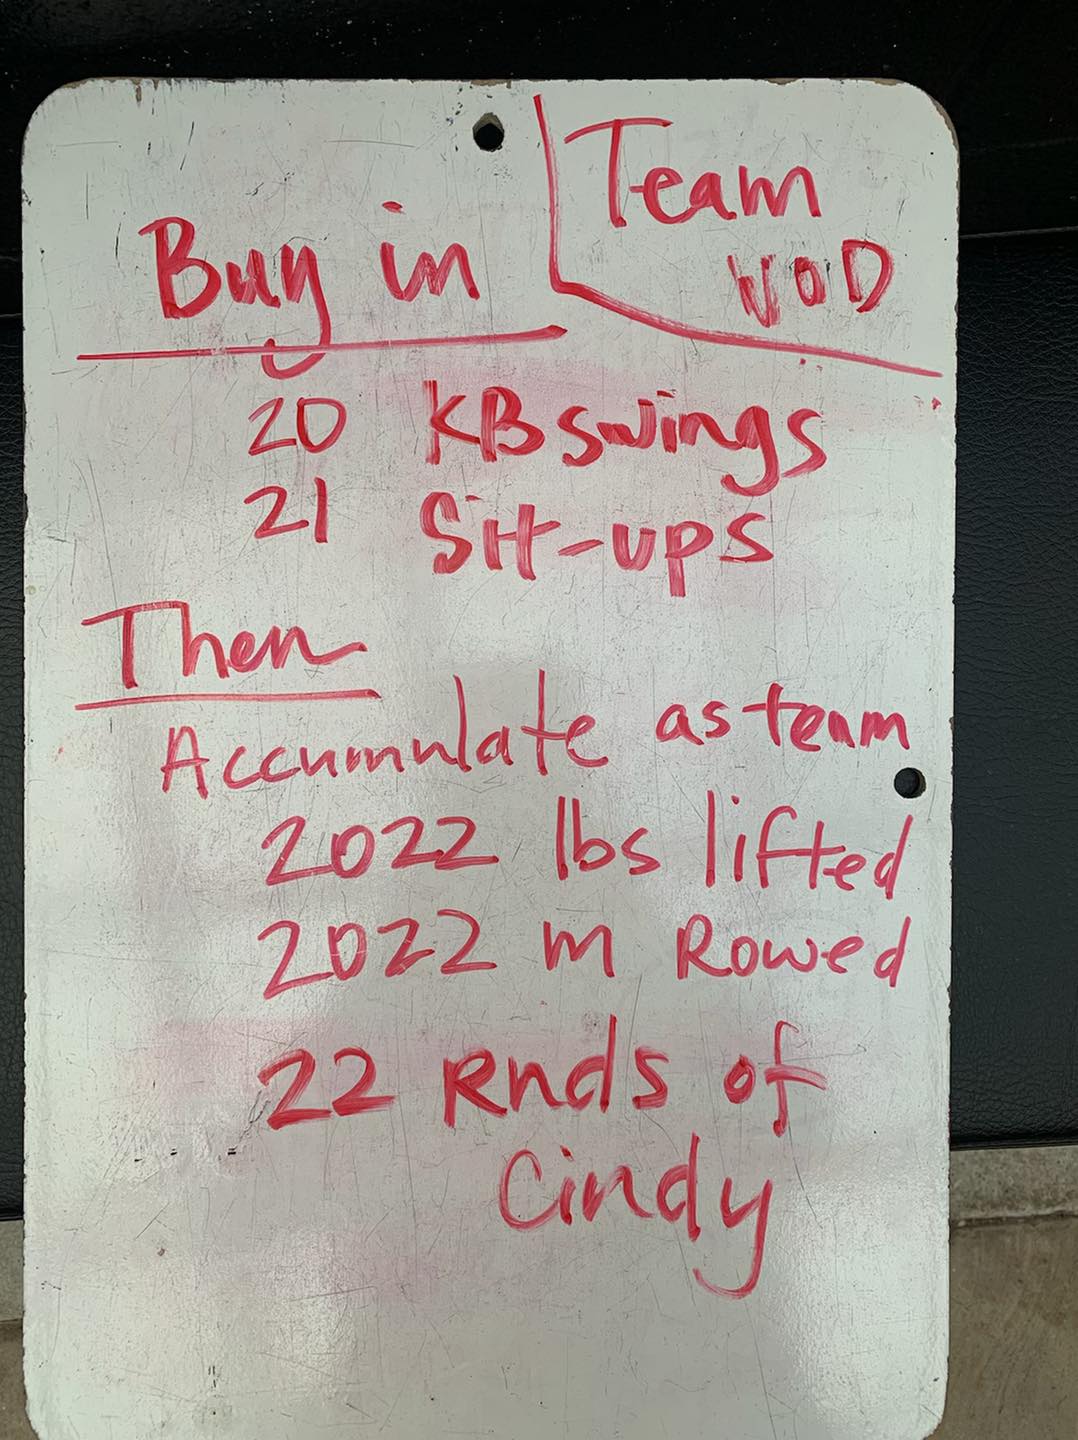 Team
WOD
Buy in
20 KB swings
21 Sit-ups
Then
Accumulate as team
2022 lbs lifted
2022 m Rowed
22 Rnds of
Cindy